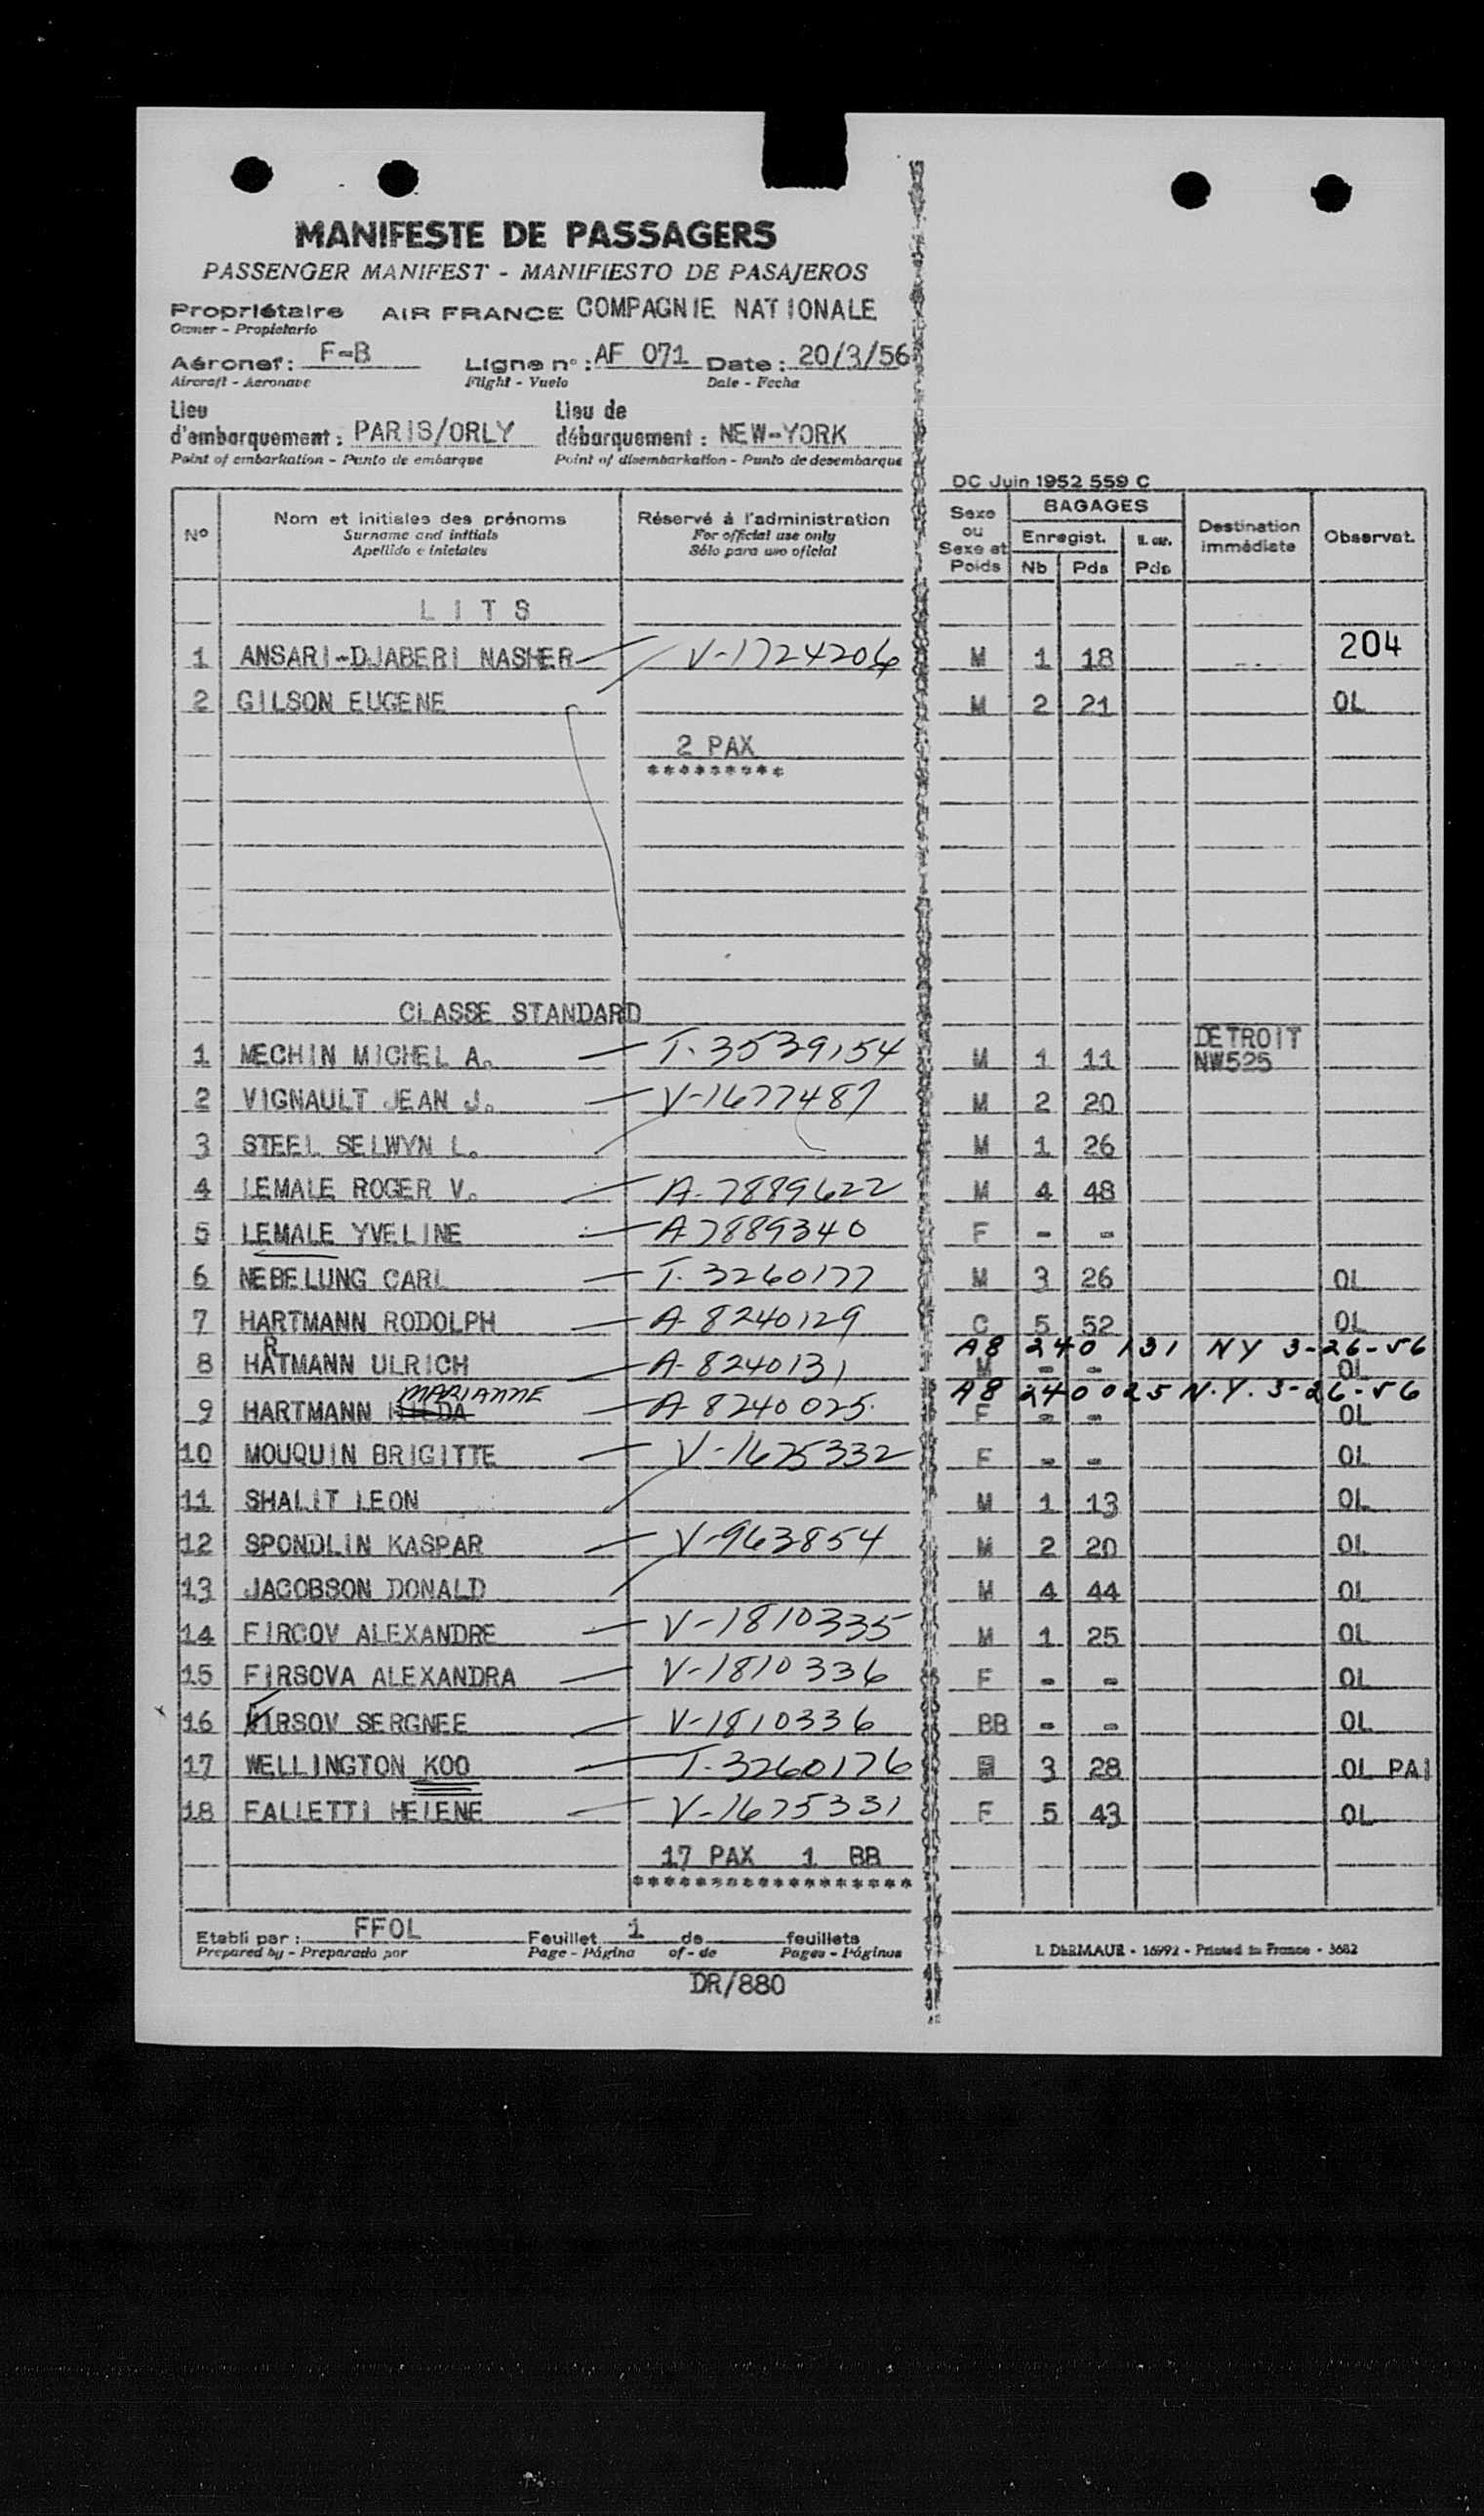 MANIFESTE DE PASSAGERS
PASSENGER MANIFEST - MANIFIESTO DE PASAJEROS
Propriétaire AIR FRANCE COMPAGNIE NATIONALE
Owner - Propietario
Aéronef : F-B Ligne n° : AF 071 Date : 20/3/56
Aircraft - Aeronave Flight - Vuelo Date - Fecha
Lieu d'embarquement : PARIS/ORLY Lieu de débarquement : NEW-YORK
Point of embarkation - Punto de embarque Point of disembarkation - Punto de desembarque
DC Juin 1952 559 C
N° Nom et initiales des prénoms Réservé à l'administration Sexe ou Sexe et Poids BAGAGES Enregist. Nb Pds Pds Destination immédiate Observat.
Surname and initials For official use only
Apellido e iniciales Sólo para uso oficial
LITS
204
1 ANSARI-DJABERI NASHER V-1724206 M 1 18
2 GILSON EUGENE M 2 21 OL
2 PAX
*********
CLASSE STANDARD
1 MECHIN MICHEL A. T-3539154 M 1 11 DETROIT NW525
2 VIGNAULT JEAN J. V-1677487 M 2 20
3 STEEL SELWYN L. M 1 26
4 LEMALE ROGER V. A-7889622 M 4 48
5 LEMALE YVELINE A7889340 F - -
6 NEBELUNG CARL T-3260177 M 3 26 OL
7 HARTMANN RODOLPH A-8240129 C 5 52 OL
A8 240 131 NY 3-26-56
R
8 HATMANN ULRICH A-8240131 M - - OL
A8 240 025 N.Y. 3-26-56
MARIANNE
9 HARTMANN HILDA A-8240025 F - - OL
10 MOUQUIN BRIGITTE V-1675332 F - - OL
11 SHALIT LEON M 1 13 OL
12 SPONDLIN KASPAR V-963854 M 2 20 OL
13 JACOBSON DONALD M 4 44 OL
14 FIRCOV ALEXANDRE V-1810335 M 1 25 OL
15 FIRSOVA ALEXANDRA V-1810336 F - - OL
16 FIRSOV SERGNEE V-1810336 BB - - OL
17 WELLINGTON KOO T-3260176 3 28 OL PAI
18 FALLETTI HELENE V-1675331 F 5 43 OL
17 PAX 1 BB
******************
Etabli par : FFOL Feuillet 1 de feuillets
Prepared by - Preparado por Page - Página of - de Pages - Páginas
I. DERMAUR - 16992 - Printed in France - 3682
DR/880